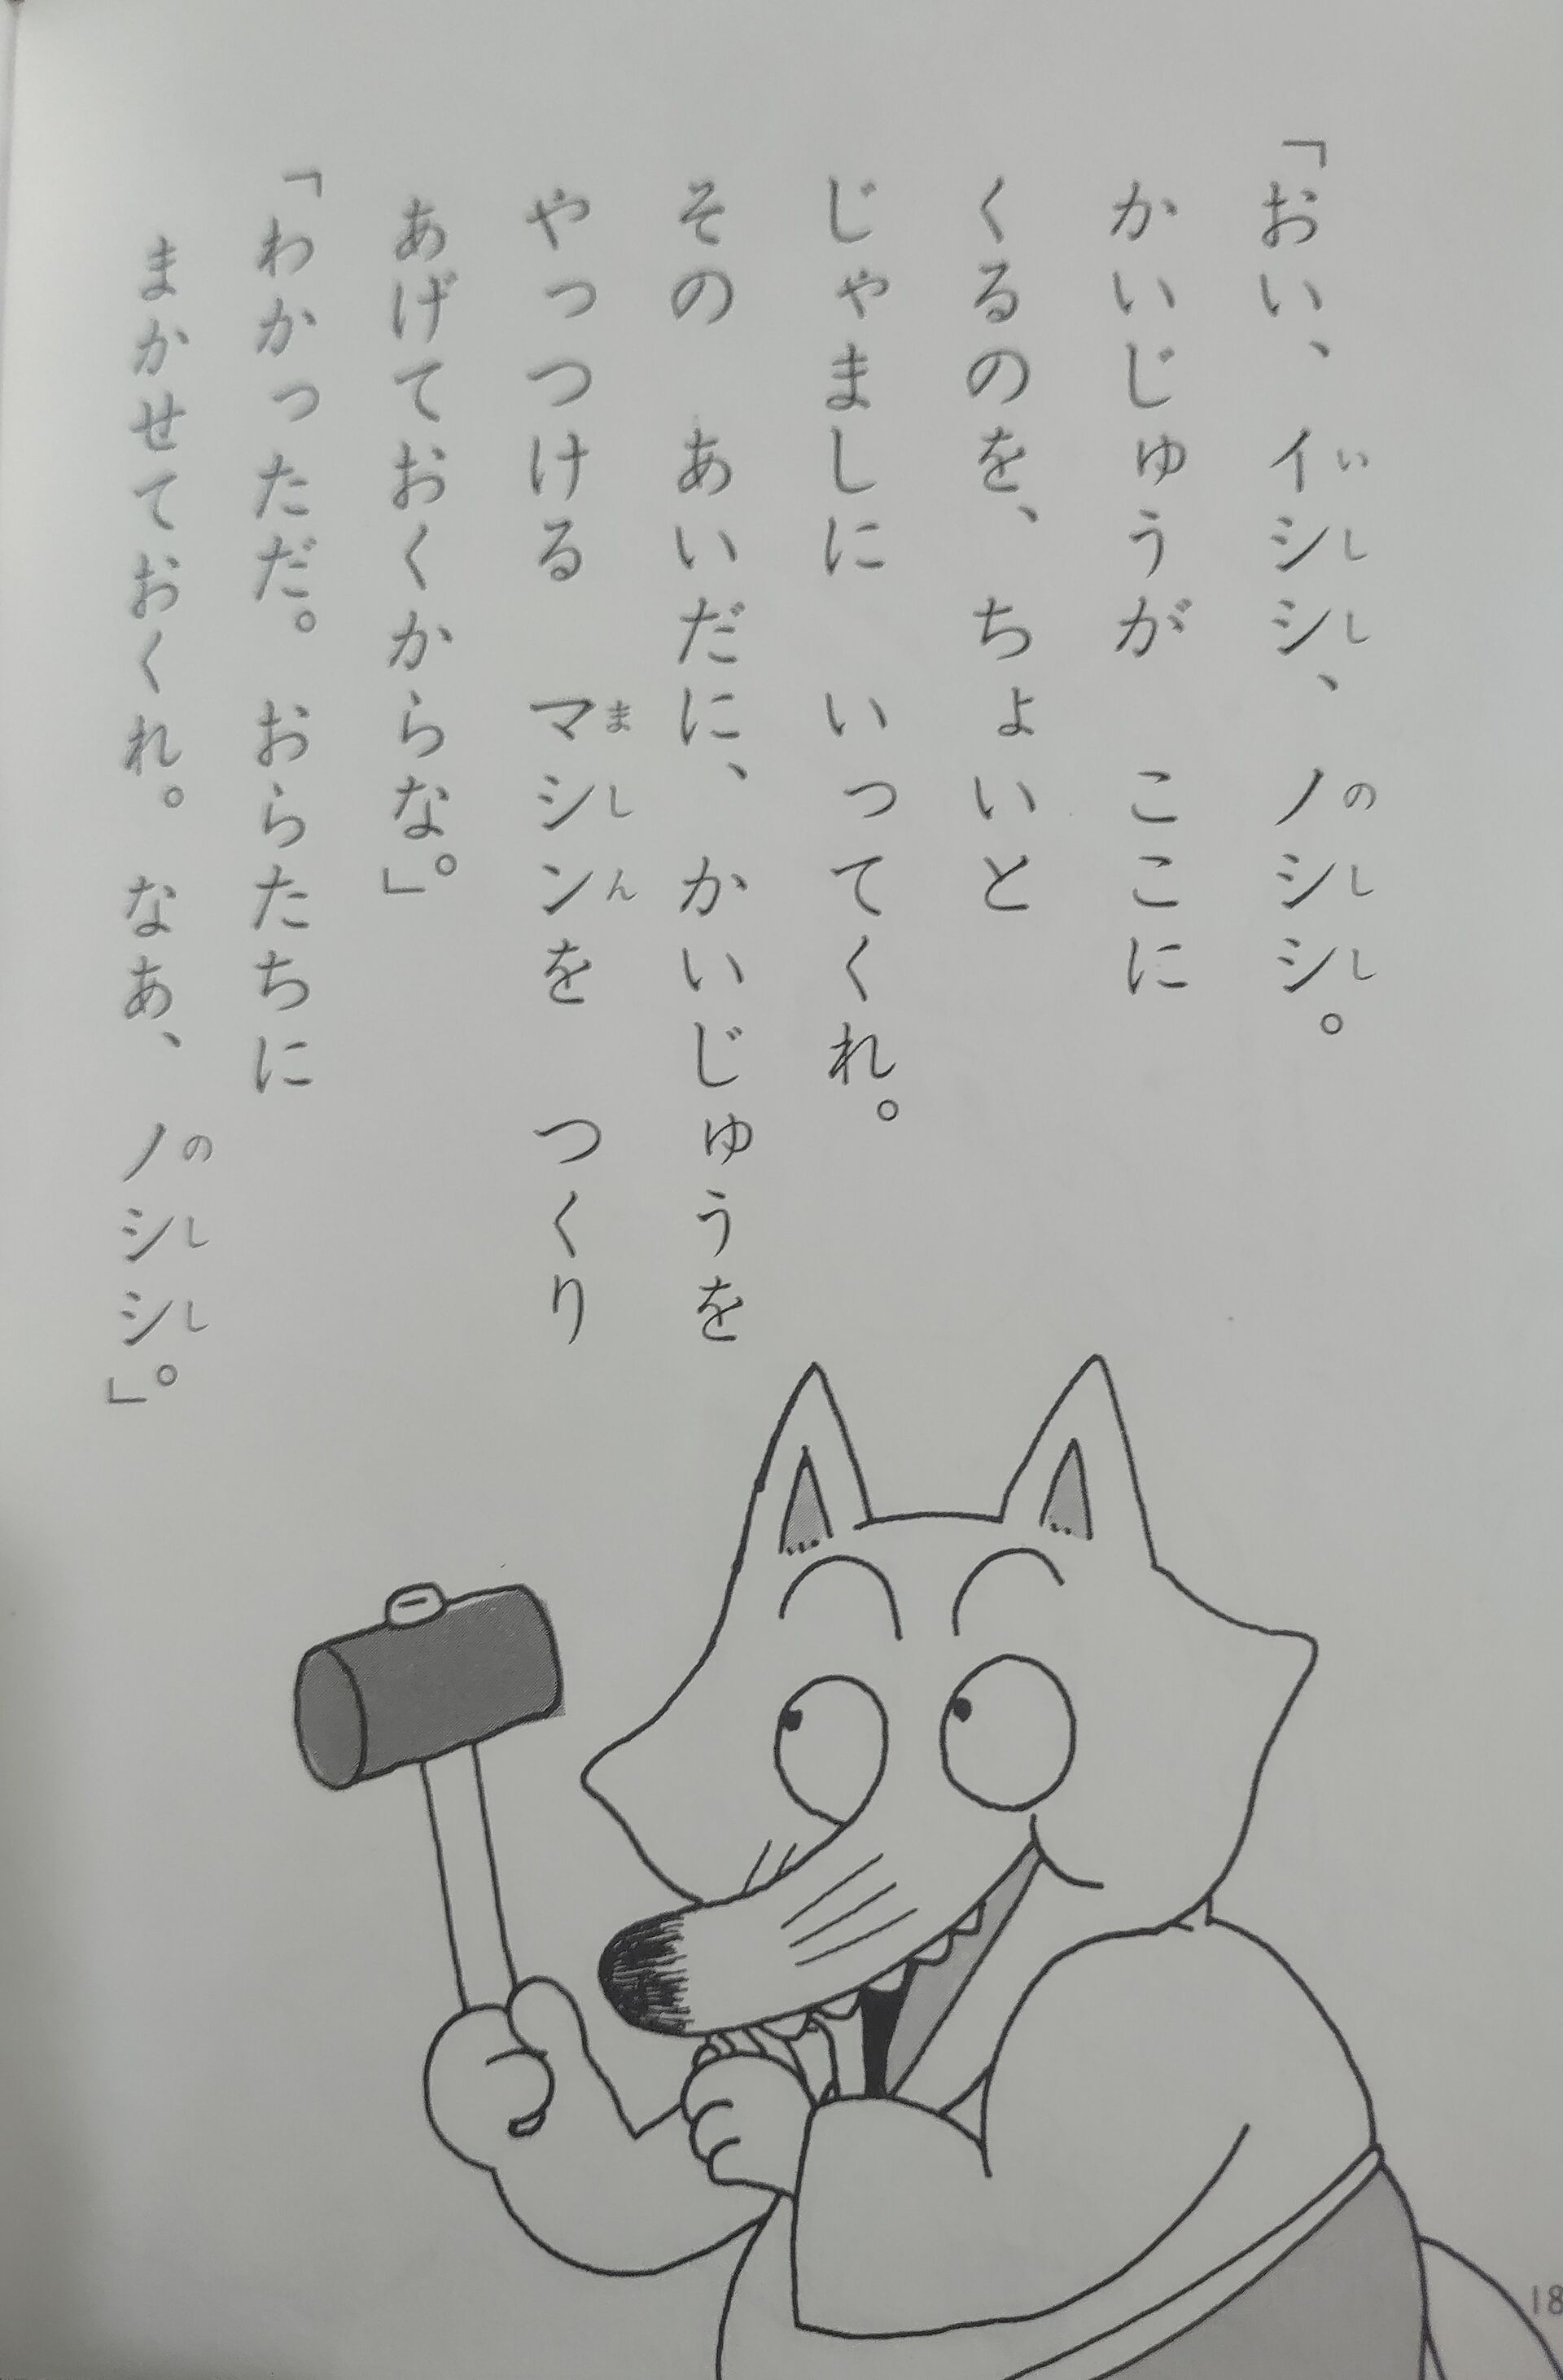 「おい、イシシ、ノシシ。
かいじゅうが　ここに
くるのを、ちょいと
じゃましに　いってくれ。
その　あいだに、かいじゅうを
やっつける　マシンを　つくり
あげておくからな。」
「わかっただ。おらたちに
まかせておくれ。なあ、ノシシ。」
18